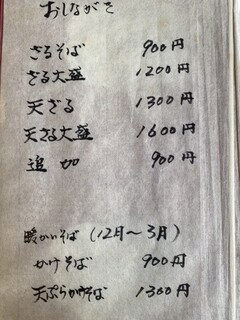 おしながき
ざるそば 900円
ざる大盛 1200円
天ざる 1300円
天ざる大盛 1600円
追加 900円
暖かいそば (12月～3月)
かけそば 900円
天ぷらかけそば 1300円